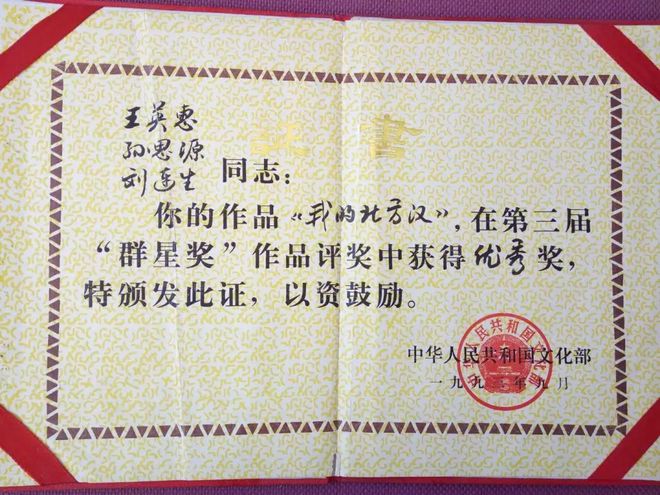 證書
王英惠
孙思源
刘连生 同志：
你的作品“我的北方汉”，在第三届
“群星奖”作品评奖中获得优秀奖，
特颁发此证，以资鼓励。
中华人民共和国文化部
一九九三年九月
中华人民共和国文化部